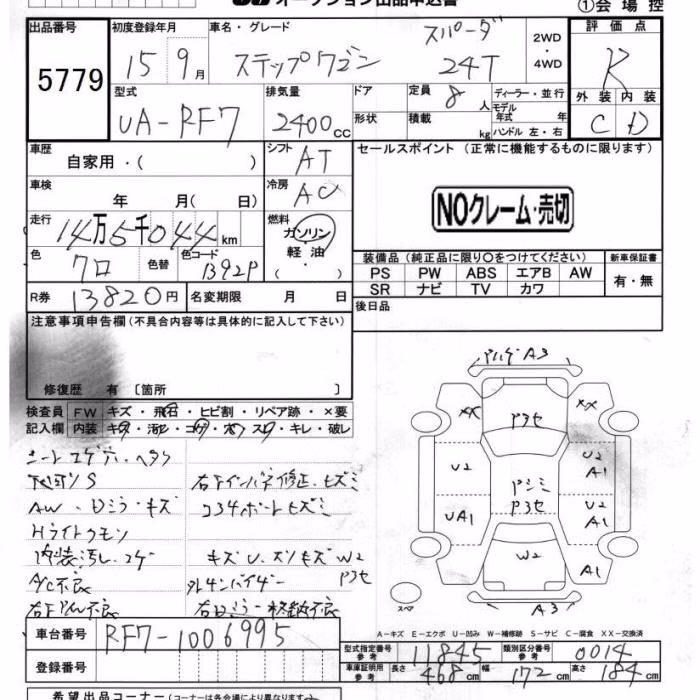 オークション出品申込書
①会場控
出品番号 初度登録年月 車名・グレード 2WD・4WD 評価点
5779 15 9月 ステップワゴン スパーダ 24T R
型式 排気量 ドア 定員 8人 ディーラー・並行 外装 内装
UA-RF7 2400cc 形状 積載 kg モデル年式 年 ハンドル 左・右 C D
車歴 自家用・( ) シフト AT セールスポイント (正常に機能するものに限ります)
車検 年 月( 日) 冷房 AC NOクレーム・売切
走行 14万5千044km 燃料 ガソリン 軽油
色 クロ 色替 色コード B92P 装備品(純正品に限り○をつけてください) 新車保証書
PS PW ABS エアB AW 有・無
SR ナビ TV カワ
R券 13820円 名変期限 月 日 後日品
注意事項申告欄(不具合内容等は具体的に記入して下さい)
修復歴 有〔箇所 〕
検査員 FW キズ・飛石・ヒビ割・リペア跡・×要
記入欄 内装 キズ・汚レ・コゲ・ズレ・スレ・キレ・破レ
シートコゲ穴・ヘタリ
下回りS 右Fインパネ修正、ヒズミ
AW・Dミラーキズ コアサポートヒズミ
Hライトクモリ
内装汚レ・コゲ キズU・スリキズ W2
A/C不良 外サンバイザー P3セ
右Dミラー格納不良
車台番号 RF7-1006995
登録番号
A3
XX P3セ XX
U2 U2 A1
P3セ
UA1 U2 A1
W2 A1
スペア A3
A-キズ E-エクボ U-凹み W-補修跡 S-サビ C-腐食 XX-交換済
型式指定番号 参考 11845 類別区分番号 参考 0014
車庫証明用 参考 長さ 468cm 幅 172cm 高さ 184cm
希望出品コーナー(コーナーは各会場により異なります)